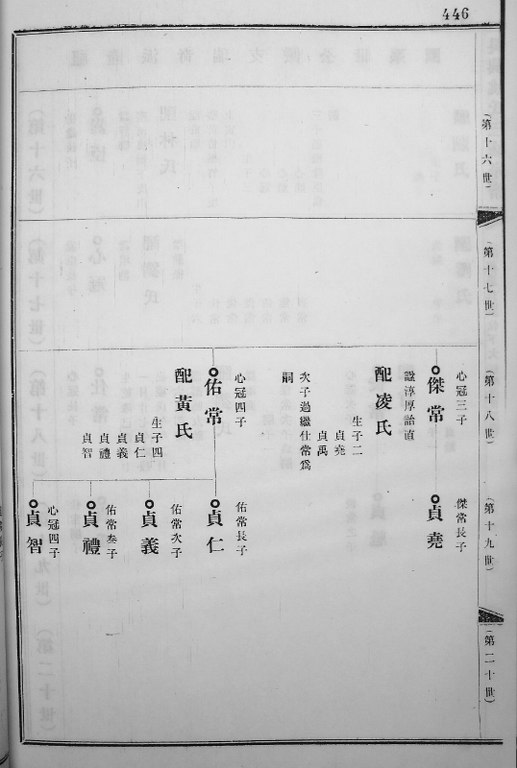 446
(第十六世)
(第十七世)
(第十八世)
(第十九世)
(第二十世)
心冠三子
傑常
諡淳厚
配凌氏
生子二
貞堯
貞禹
次子過繼仕常爲
嗣
傑常長子
貞堯
心冠四子
佑常
配黃氏
生子四
貞仁
貞義
貞禮
貞智
佑常長子
貞仁
佑常次子
貞義
佑常叁子
貞禮
心冠四子
貞智